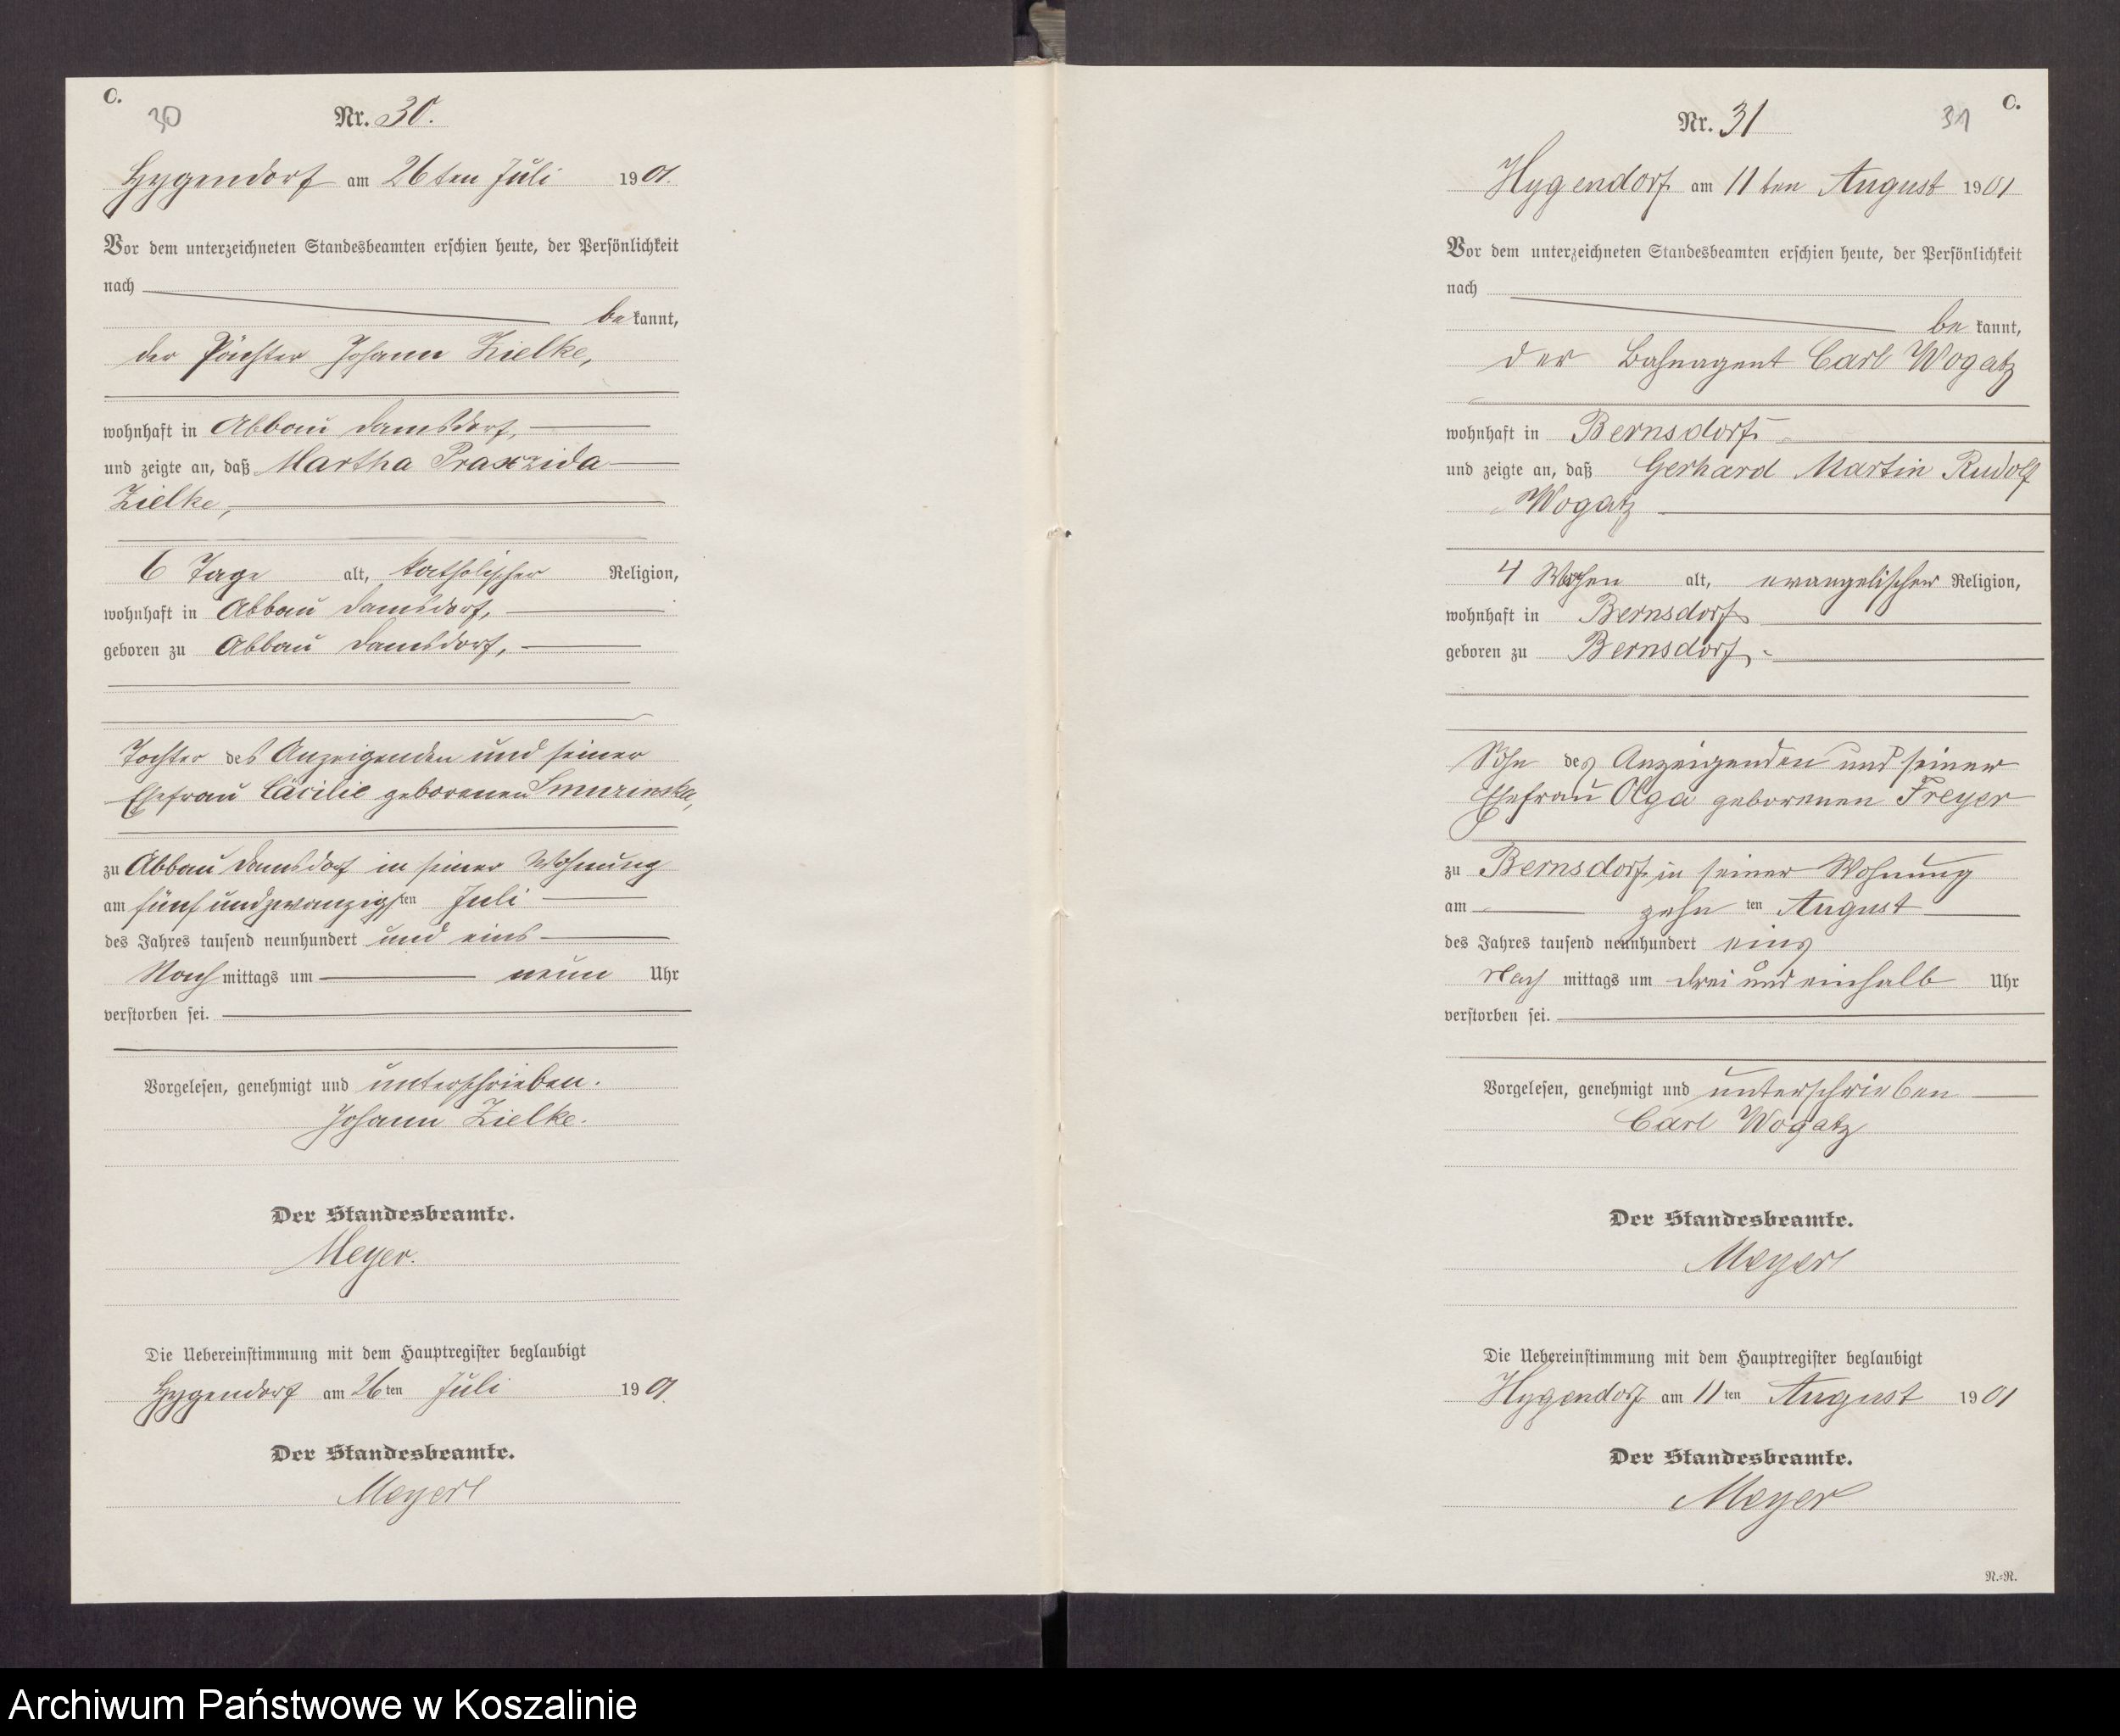 C.
30
Nr. 30.
Hygendorf am 26ten Juli 1901.
Vor dem unterzeichneten Standesbeamten erschien heute, der Persönlichkeit
nach
bekannt,
der Pächter Johann Zielke,
wohnhaft in Abbau Damsdorf,
und zeigte an, daß Martha Praxzida
Zielke,
6 Tage alt, katholischer Religion,
wohnhaft in Abbau Damsdorf,
geboren zu Abbau Damsdorf,
Tochter des Anzeigenden und seiner
Ehefrau Cäcilie geborenen Smuzinska,
zu Abbau Damsdorf in seiner Wohnung
am fünfundzwanzigsten Juli
des Jahres tausend neunhundert und eins
Nachmittags um neun Uhr
verstorben sei.
Vorgelesen, genehmigt und unterschrieben.
Johann Zielke.
Der Standesbeamte.
Meyer.
Die Uebereinstimmung mit dem Hauptregister beglaubigt
Hygendorf am 26ten Juli 1901.
Der Standesbeamte.
Meyer
C.
31
Nr. 31
Hygendorf am 11ten August 1901
Vor dem unterzeichneten Standesbeamten erschien heute, der Persönlichkeit
nach
bekannt,
der Bahnagent Carl Wogatz
wohnhaft in Bernsdorf
und zeigte an, daß Gerhard Martin Rudolf
Wogatz
4 Wochen alt, evangelischer Religion,
wohnhaft in Bernsdorf
geboren zu Bernsdorf
Sohn des Anzeigenden und seiner
Ehefrau Olga geborenen Freyer
zu Bernsdorf in seiner Wohnung
am zehnten August
des Jahres tausend neunhundert eins
Nachmittags um drei und einhalb Uhr
verstorben sei.
Vorgelesen, genehmigt und unterschrieben
Carl Wogatz
Der Standesbeamte.
Meyer
Die Uebereinstimmung mit dem Hauptregister beglaubigt
Hygendorf am 11ten August 1901
Der Standesbeamte.
Meyer
N.=N.
Archiwum Państwowe w Koszalinie